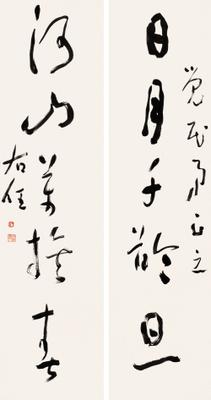 覺民弟正之
日月千齡旦
河山萬族春
右任